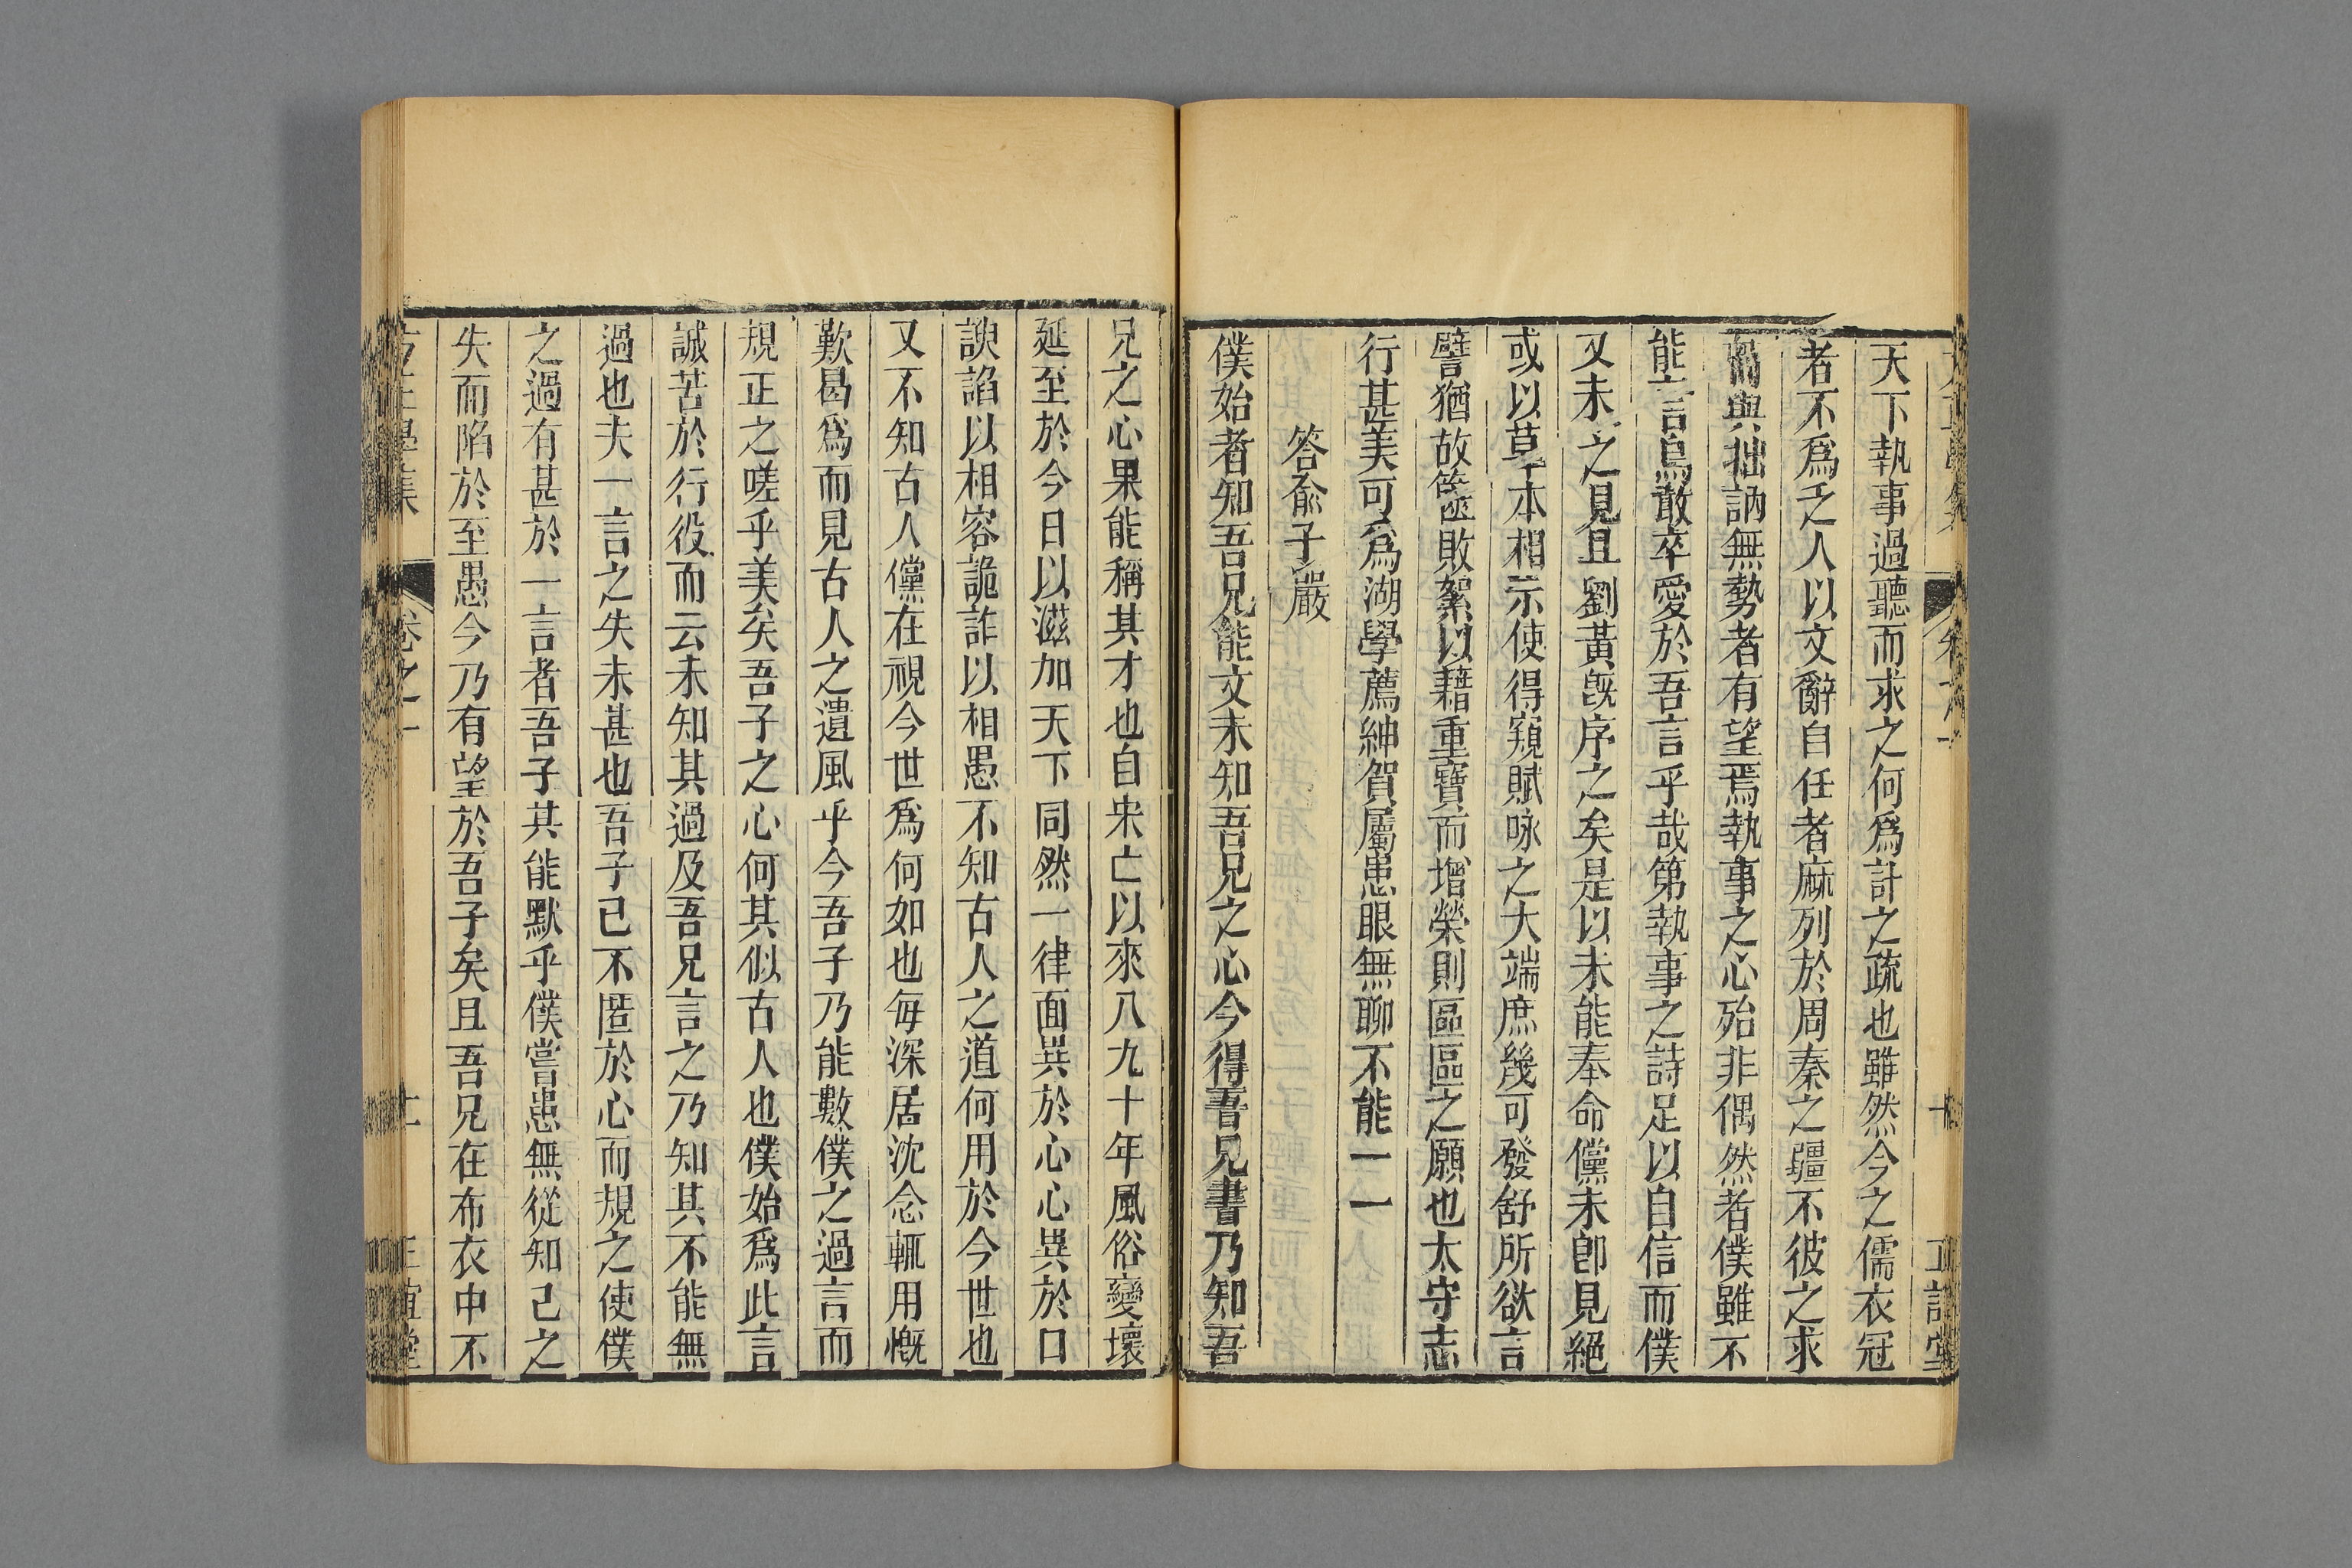 天下執事過聽而求之何爲計之疏也雖然今之儒衣冠
者不爲乏人以文辭自任者麻列於周秦之疆不彼之求
而與拙訥無勢者有望焉執事之心殆非偶然者僕雖不
能言烏敢卒愛於吾言乎哉第執事之詩足以自信而僕
又未之見且劉黃旣序之矣是以未能奉命儻未卽見絕
或以草本相示使得窺賦咏之大端庶幾可發舒所欲言
譬猶故篋敗絮以藉重寶而增榮則區區之願也太守志
行甚美可爲湖學薦紳賀屬患眼無聊不能一一
答俞子嚴
僕始者知吾兄能文未知吾兄之心今得吾兄書乃知吾
兄之心果能稱其才也自宋亡以來八九十年風俗變壞
延至於今日以滋加天下同然一律面異於心心異於口
諛諂以相容詭詐以相愚不知古人之道何用於今世也
又不知古人儻在視今世爲何如也每深居沈念輒用慨
歎曷爲而見古人之遺風乎今吾子乃能數僕之過言而
規正之嗟乎美矣吾子之心何其似古人也僕始爲此言
誠苦於行役而云未知其過及吾兄言之乃知其不能無
過也夫一言之失未甚也吾子己不匿於心而規之使僕
之過有甚於一言者吾子其能默乎僕嘗患無從知己之
失而陷於至愚今乃有望於吾子矣且吾兄在布衣中不